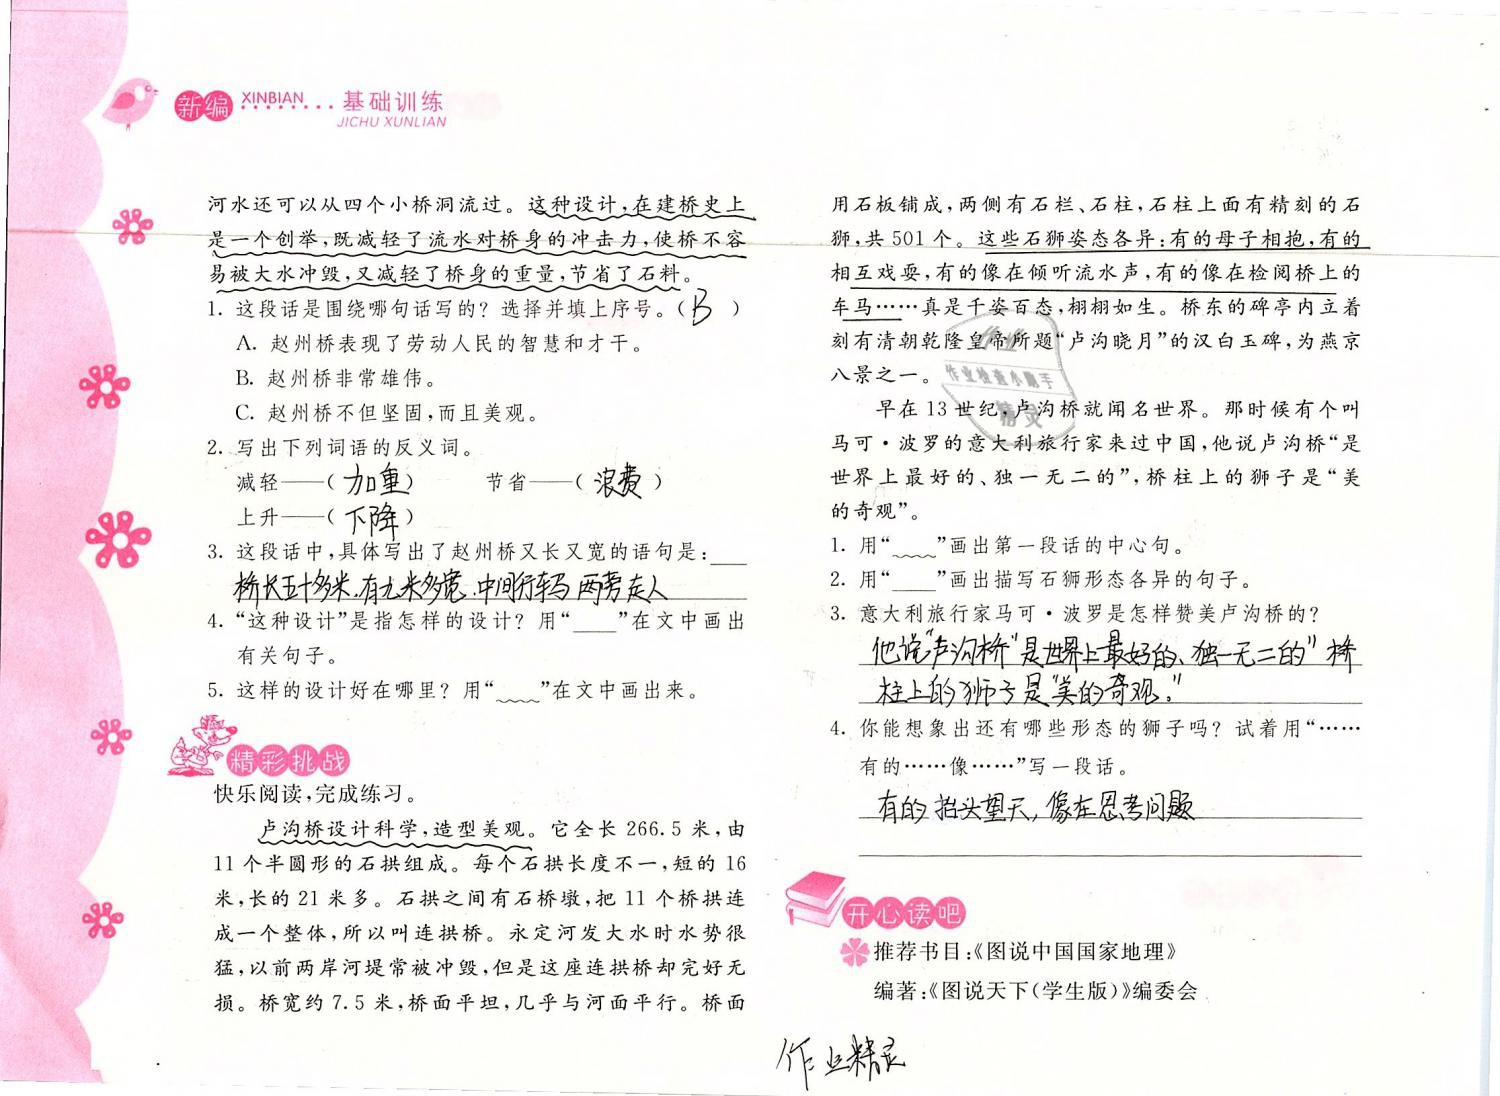 新编 XINBIAN ········ 基础训练
JICHU XUNLIAN
河水还可以从四个小桥洞流过。这种设计,在建桥史上
是一个创举,既减轻了流水对桥身的冲击力,使桥不容
易被大水冲毁,又减轻了桥身的重量,节省了石料。
1. 这段话是围绕哪句话写的？选择并填上序号。（ B ）
A. 赵州桥表现了劳动人民的智慧和才干。
B. 赵州桥非常雄伟。
C. 赵州桥不但坚固,而且美观。
2. 写出下列词语的反义词。
减轻——（ 加重 ） 节省——（ 浪费 ）
上升——（ 下降 ）
3. 这段话中,具体写出了赵州桥又长又宽的语句是：___
桥长五十多米.有九米多宽.中间行车马 两旁走人
4. “这种设计”是指怎样的设计？用“___”在文中画出
有关句子。
5. 这样的设计好在哪里？用“﹏﹏”在文中画出来。
精彩挑战
快乐阅读,完成练习。
卢沟桥设计科学,造型美观。它全长 266.5 米,由
11 个半圆形的石拱组成。每个石拱长度不一,短的 16
米,长的 21 米多。石拱之间有石桥墩,把 11 个桥拱连
成一个整体,所以叫连拱桥。永定河发大水时水势很
猛,以前两岸河堤常被冲毁,但是这座连拱桥却完好无
损。桥宽约 7.5 米,桥面平坦,几乎与河面平行。桥面
用石板铺成,两侧有石栏、石柱,石柱上面有精刻的石
狮,共 501 个。这些石狮姿态各异：有的母子相抱,有的
相互戏耍,有的像在倾听流水声,有的像在检阅桥上的
车马……真是千姿百态,栩栩如生。桥东的碑亭内立着
刻有清朝乾隆皇帝所题“卢沟晓月”的汉白玉碑,为燕京
八景之一。
作业检查小助手
精灵
早在 13 世纪,卢沟桥就闻名世界。那时候有个叫
马可·波罗的意大利旅行家来过中国,他说卢沟桥“是
世界上最好的、独一无二的”,桥柱上的狮子是“美
的奇观”。
1. 用“﹏﹏”画出第一段话的中心句。
2. 用“___”画出描写石狮形态各异的句子。
3. 意大利旅行家马可·波罗是怎样赞美卢沟桥的？
他说“卢沟桥“是世界上最好的、独一无二的” 桥
柱上的狮子是“美的奇观。”
4. 你能想象出还有哪些形态的狮子吗？试着用“……
有的……像……”写一段话。
有的抬头望天,像在思考问题
开心读吧
推荐书目:《图说中国国家地理》
编著:《图说天下(学生版)》编委会
作业精灵